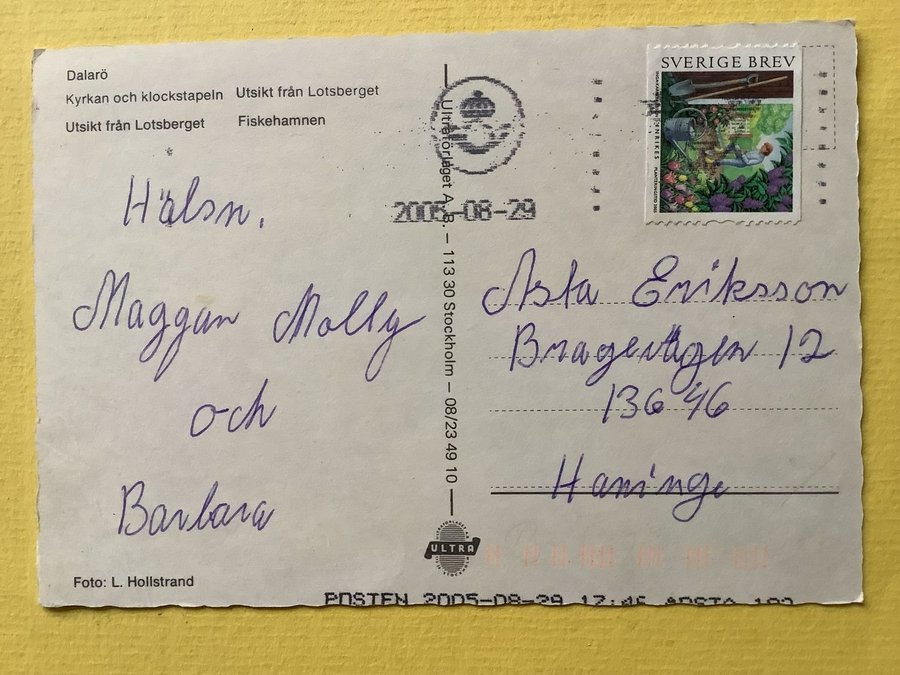 Dalarö
Kyrkan och klockstapeln Utsikt från Lotsberget
Utsikt från Lotsberget Fiskehamnen
Hälsn.
Maggan Molly
och
Barbara
Foto: L. Hollstrand
Ultraförlaget A.B. – 113 30 Stockholm – 08/23 49 10
ULTRA
2005-08-29
SVERIGE BREV
Asta Eriksson
Bragevägen 12
136 46
Haninge
POSTEN 2005-08-29 17:46 ÅRSTA